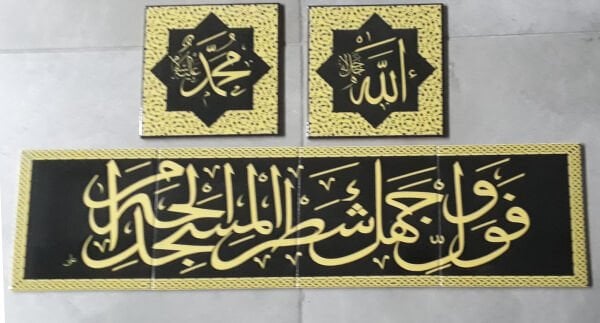 الله جل جلاله
محمد ﷺ
فول وجهك شطر المسجد الحرام